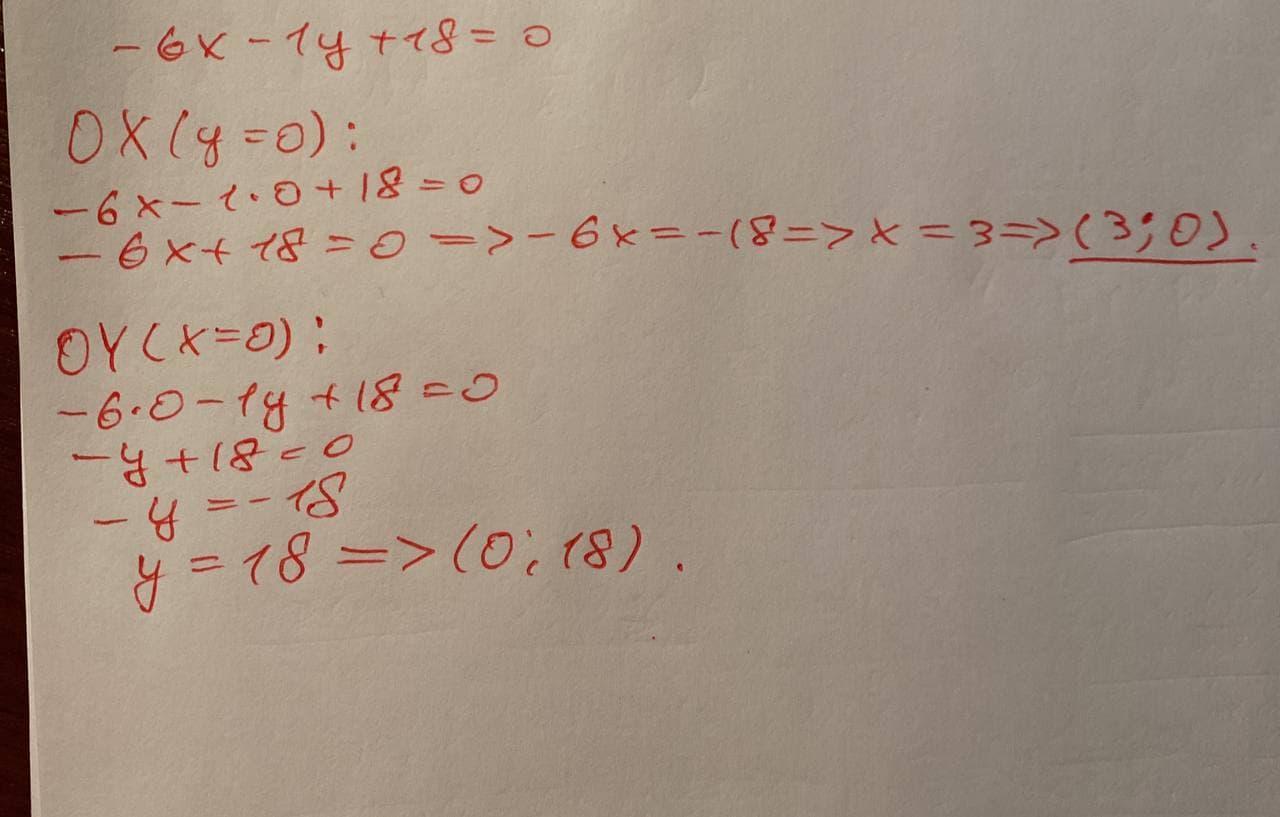 -6x-1y+18=0
OX(y=0):
-6x-1·0+18=0
-6x+18=0=>-6x=-18=>x=3=>(3;0).
OY(x=0):
-6·0-1y+18=0
-y+18=0
-y=-18
y=18=>(0;18).